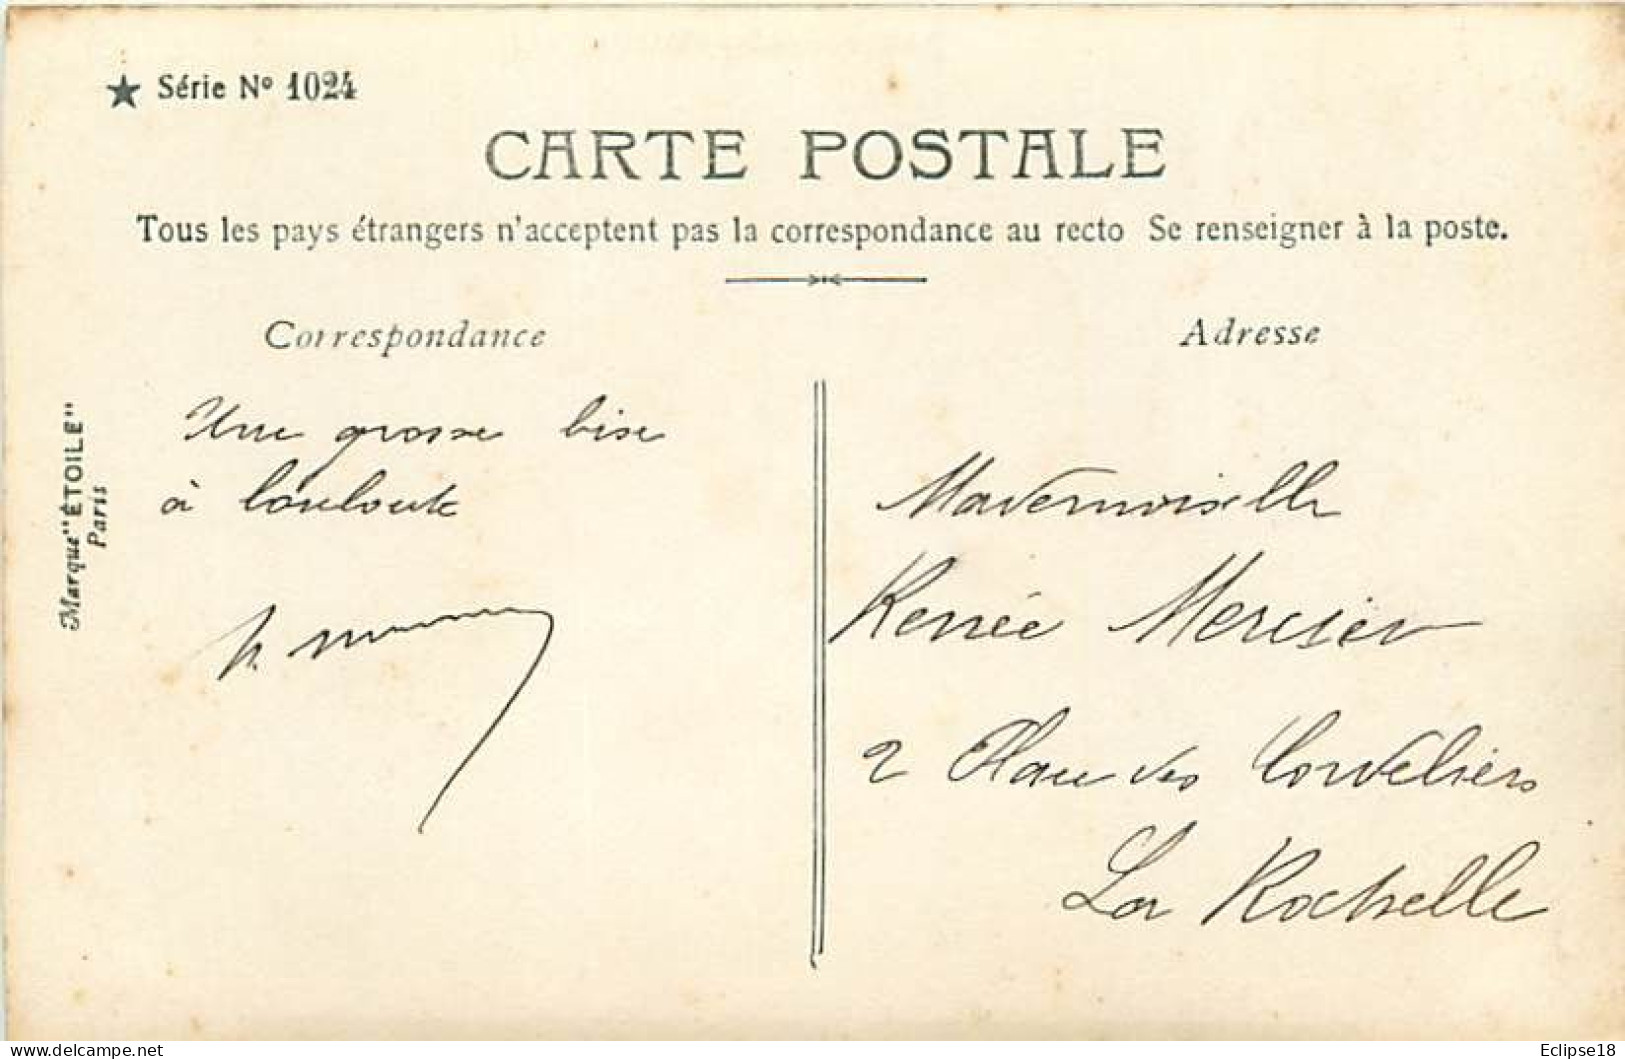 ★ Série Nº 1024
CARTE POSTALE
Tous les pays étrangers n'acceptent pas la correspondance au recto Se renseigner à la poste.
Correspondance
Adresse
Marque "ÉTOILE"
Paris
Une grosse bise
à Louloute
Mademoiselle
Renée Mercier
2 Place des Cordeliers
La Rochelle
delcampe.net
Eclipse18